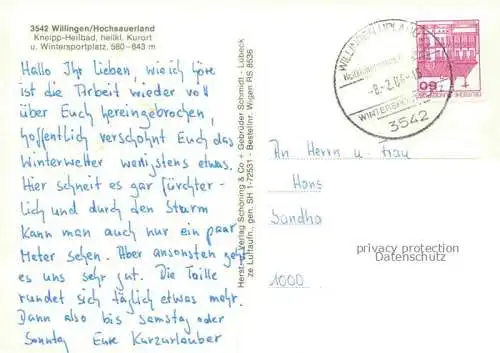 3542 Willingen/Hochsauerland
Kneipp-Heilbad, heilkl. Kurort
u. Wintersportplatz, 560–843 m
Hallo Ihr Lieben, wie ich höre
ist die Arbeit wieder voll
über Euch hereingebrochen,
hoffentlich verschohnt Euch das
Winterwetter wenigstens etwas.
Hier schneit es gar fürchter-
lich und durch den Sturm
kann man auch nur ein paar
Meter sehen. Aber ansonsten geht
es uns sehr gut. Die Taille
rundet sich täglich etwas mehr.
Dann also bis samstag oder
Sonntag Eure Kurzurlauber
Herst. u. Verlag Schöning & Co + Gebrüder Schmidt - Lübeck
ze Luftaufn. gen. SH 1-72531 - Bestellnr. Wigen RS 8536
WILLINGEN UPLAND
-8.-2.84-
WINTERSPORT
3542
60
An Herrn u. Frau
Hans
Sandho
1000
privacy protection
Datenschutz